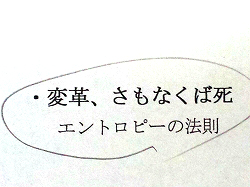 ・変革、さもなくば死
エントロピーの法則